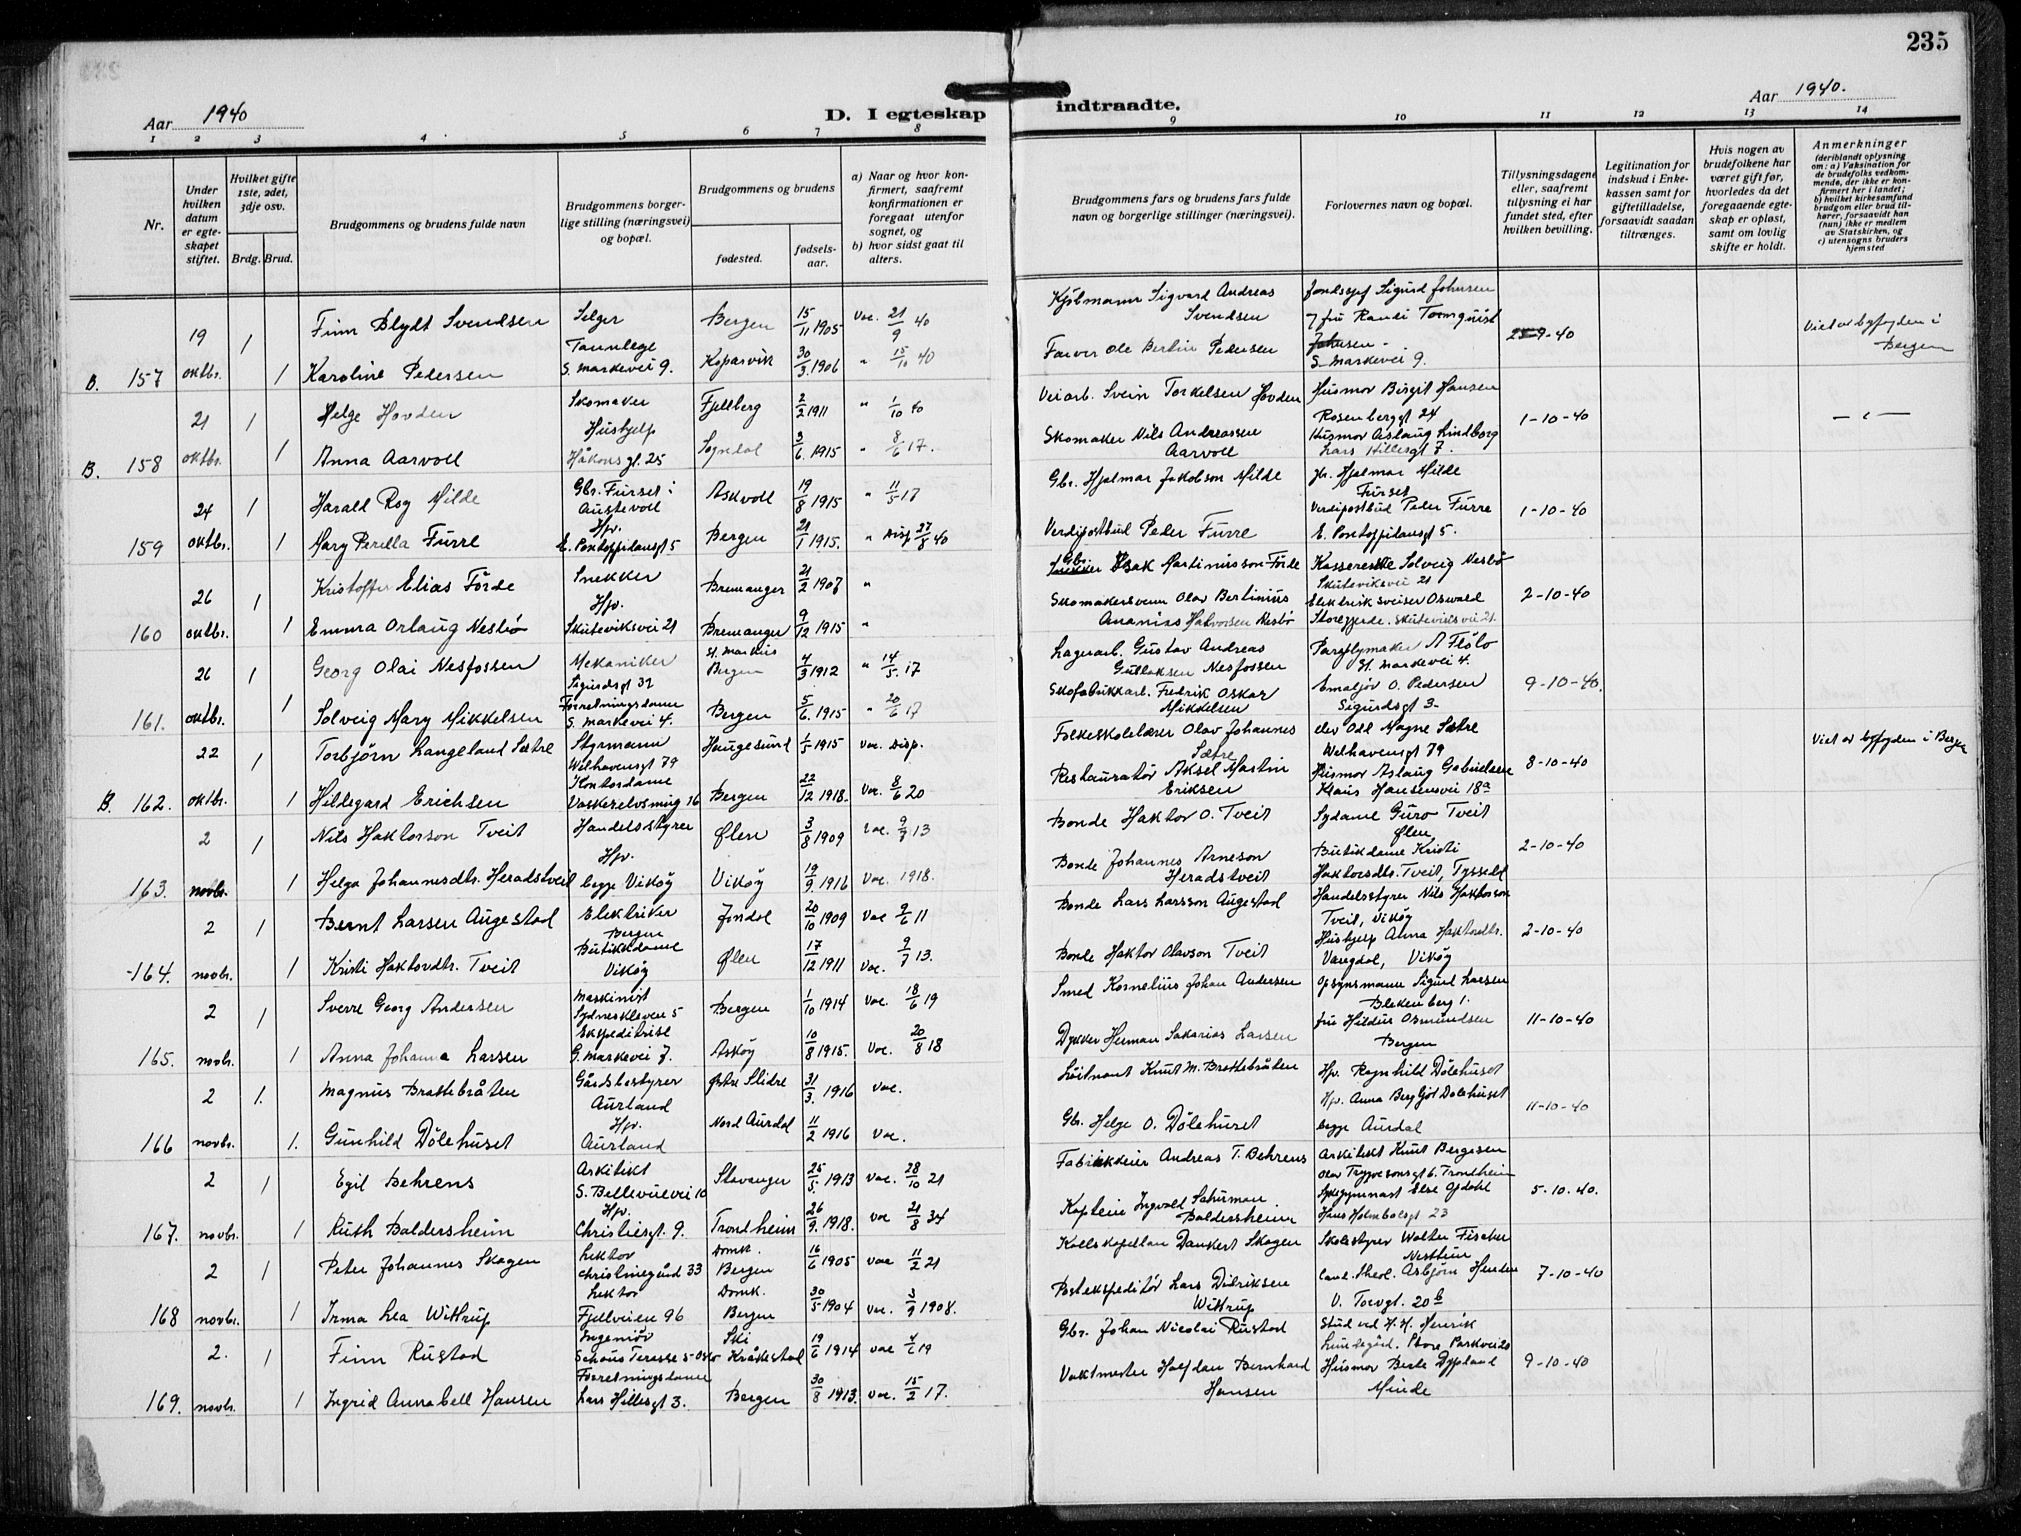 235
Aar 1940
D. I egteskap indtraadte.
Aar 1940.
1 2 3 4 5 6 7 8 9 10 11 12 13 14
Nr.
Under hvilken datum er egteskapet stiftet.
Hvilket gifte 1ste, 2det, 3dje osv.
Brdg. Brud.
Brudgommens og brudens fulde navn
Brudgommens borgerlige stilling (næringsvei) og bopæl.
Brudgommens og brudens
fødested.
fødselsaar.
a) Naar og hvor konfirmert, saafremt konfirmationen er foregaat utenfor sognet, og
b) hvor sidst gaat til alters.
Brudgommens fars og brudens fars fulde navn og borgerlige stillinger (næringsvei).
Forlovernes navn og bopæl.
Tillysningsdagene eller, saafremt tillysning ei har fundet sted, efter hvilken bevilling.
Legitimation for indskud i Enkekassen samt for giftetilladelse, forsaavidt saadan tiltrænges.
Hvis nogen av brudefolkene har været gift før, hvorledes da det foregaaende egteskap er opløst, samt om lovlig skifte er holdt.
Anmerkninger
(deriblandt oplysning om: a) Vaksination for de brudefolks vedkommende, der ikke er konfirmert her i landet; b) hvilket kirkesamfund brudgom eller brud tilhører, forsaavidt han (hun) ikke er medlem av Statskirken, og c) utensogns bruders hjemsted
19 1 Finn Blydt Svendsen Selger Bergen 15/11 1905 Vac. 21/9 40 Kjølmann Sigvard Andreas Svendsen
Sigurd Johnsen
fru Randi Tornquist Johnsen - S. Markevei 9.
9-40
Viet av byfogden i Bergen
B. 157 oktbr. 1 Karoline Pedersen Tannlege S. Markevei 9. Kopervik 30/3 1906 " 15/10 40 Farver Ole Bertin Pedersen
21 1 Helge Hovden Skomaker Fjellberg 2/2 1911 " 1/10 40 Veiarb. Svein Torkelsen Hovden Husmor Birgit Hansen Rosenbergsgt 24
1-10-40
— " —
B. 158 oktbr. 1 Anna Aarvoll Hushjelp Håkonsgt. 25 Sogndal 3/6 1915 " 8/6 17. Skomaker Nils Andreassen Aarvoll Husmor Aslaug Lindborg Lars Hillesgt 7.
24 1 Harald Roy Milde Gbr. Furset i Austevoll Askvoll 19/8 1915 " 11/5 17 Gbr. Hjalmar Jakobson Milde Gbr. Hjalmar Milde Furset
1-10-40
159 oktbr. 1 Mary Perella Furre Hpv. E. Pontoppidansgt 5 Bergen 21/1 1915. " Disp 27/8 40 Verdipostbud Peder Furre Verdipostbud Peder Furre E. Pontoppidansgt 5.
26 1 Kristoffer Elias Førde Snekker Bremanger 21/2 1907 " Gbr. Isak Martinusson Førde Kassereske Solveig Nesbø Skuteviksvei 21
2-10-40
160 oktbr. 1 Emma Orlaug Nesbø Hpv. Skuteviksvei 21 Bremanger 9/12 1915 " Skomakersvenn Olav Bertinius Ananias Halvorsen Nesbø Elektrisk sveiser Oswald Storegjerde. Skuteviksvei 21.
26 1 Georg Olai Nesfossen Mekaniker Sigurdsgt 32 St. Markus Bergen 4/3 1912 " 14/5. 17 Lagerarb. Gustav Andreas Gullaksen Nesfossen Paraplymaker A Fløło St. Markevei 4.
9-10-40.
161. oktbr. 1 Solveig Mary Mikkelsen Forretningsdame S. Markevei 4. Bergen 5/6. 1915 " 20/6 17 Skofabrikkarb. Fredrik Oskar Mikkelsen Emaljør O. Pedersen Sigurdsgt 3-
22 1 Torbjørn Langeland Sætre Styrmann Welhavensgt 79 Haugesund 1/5 1915 Vac. Disp. Folkeskolelærer Olav Johannes Sætre elev Odd Magne Sætre Welhavensgt 79
8-10-40
Viet av byfogden i Bergen
B. 162. oktbr. 1 Hildegard Erichsen Kontordame Vaskerelvsmug 16 Bergen 22/12 1918. Vac. 8/6 20 Restauratør Aksel Martin Eriksen Husmor Aslaug Gabrielsen Klaus Hansensvei 18a
2 1 Nils Haktorson Tveit Handelsstyrer Ølen 3/8 1909 Vac. 9/7 13 Bonde Haktor O. Tveit Sydame Guro Tveit Ølen
2-10-40
163. novbr. 1 Helga Johannesdtr. Heradstveit Hpv. begge Vikøy Vikøy 19/9. 1916 Vac. 1918. Bonde Johannes Arneson Heradstveit Butikdame Kristi Haktorsdtr. Tveit, Tyssedal
2 1 Bernt Larsen Augestad Elektriker Bergen Jondal 20/10 1909 Vac 9/6 11 Bonde Lars Larsson Augestad Handelsstyrer Nils Haktorson Tveit, Vikøy
2-10-40
164. novbr. 1 Kristi Haktordtr. Tveit Butikkdame Vikøy Ølen 17/12 1911 Vac. 9/7 13. Bonde Haktor Olavson Tveit Hushjelp Anna Haktordtr. Vangdal, Vikøy
2 1 Sverre Georg Andersen Maskinist Sydneskleven 5 Bergen 1/10 1914 Vac. 18/6 19 Smed Kornelius Johan Andersen Opsynsmann Sigurd Larsen Blekenberg 1.
11-10-40
165. novbr. 1 Anna Johanna Larsen Ekspeditrise G. Markevei 7. Askøy 10/8 1915. Vac. 20/8 18 Dykker Herman Sakarias Larsen fru Hildur Osmundsen Bergen
2 1. Magnus Brattebråten Gårdsbestyrer Aurland Østre Slidre 31/3. 1916 Vac. Løitnant Knut M. Brattebråten Hp. Ragnhild Dölehuset
11-10-40
166 novbr. 1. Gunhild Dölehuset Hpv. Aurland Nord Aurdal 11/2 1916 Vac. Gbr. Helge O. Dölehuset Hp. Anna Bergljot Dölehuset begge Aurdal
2 1 Egil Behrens Arkitekt S. Bellevuevei 10 Stavanger 25/5. 1913 Vac. 28/10 21 Fabrikkeier Andreas T. Behrens Arkitekt Knut Bergersen Olav Trygvesonsgt 6. Trondheim
5-10.40.
167. novbr. 1 Ruth Baldersheim Hpv. Christiesgt. 9. Trondheim 26/9. 1918. Vac 21/8 34 Kaptein Ingvald Schuman Baldersheim Sykegymnast Else Opdahl Hans Holmboesgt 23
2 1 Peter Johannes Skagen Lektor Christinegård 33 Domk. Bergen 16/6 1905 Vac 11/2 21 Kallskapellan Dankert Skagen Skolestyrer Walter Fischer Nesttun
7-10-40
168 novbr. 1 Irma Lea Wittrup Lektor Fjellveien 96 Domk. Bergen 30/5 1904 Vac. 3/9 1908. Postekspeditør Lars Didriksen Wittrup Cand. theol. Asbjørn V. Torvgt. 20b
2. 1 Finn Rustad Ingeniør Schous Terasse 5-Oslo Ski Kråkestad 19/6 1914 Vac 4/6 19 Gbr. Johan Nicolai Rustad Stud ved H.H. Henrik Lundegård. Store Parkvei 20
9-10-40
169. novbr. 1 Ingrid Annabell Hansen Forretningsdame Lars Hillesgt 3. Bergen 30/8 1913. Vac. 15/2 17. Vaktmester Halfdan Bernhard Hansen Husmor Berte Dypland Minde